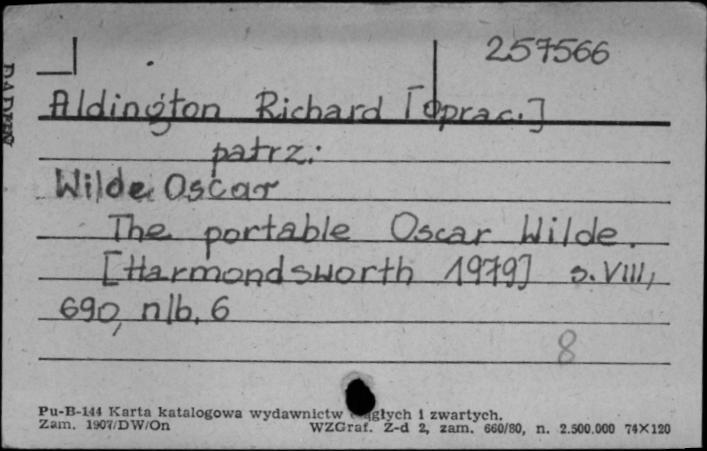 257566
Aldington Richard [oprac.]
patrz:
Wilde Oscar
The portable Oscar Wilde.
[Harmondsworth 1979] s. VIII,
690, nlb. 6
8
Pu-B-144 Karta katalogowa wydawnictw ciągłych i zwartych.
Zam. 1907/DW/On WZGraf. Z-d 2, zam. 660/80, n. 2.500.000 74X120